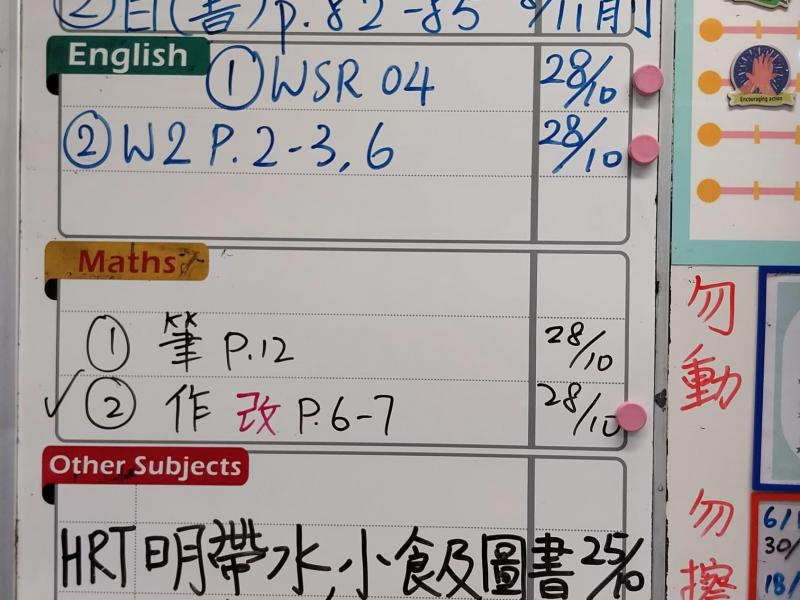 ② 日(書) p.82-85 8/11前
English
① WSR 04 28/10
② W2 P.2-3,6 28/10
Maths
① 筆 P.12 28/10
✓② 作 改 P.6-7 28/10
Other Subjects
HRT 明帶水,小食及圖書 25/10
Encouraging action
勿動
勿擦
6/
30/
18/